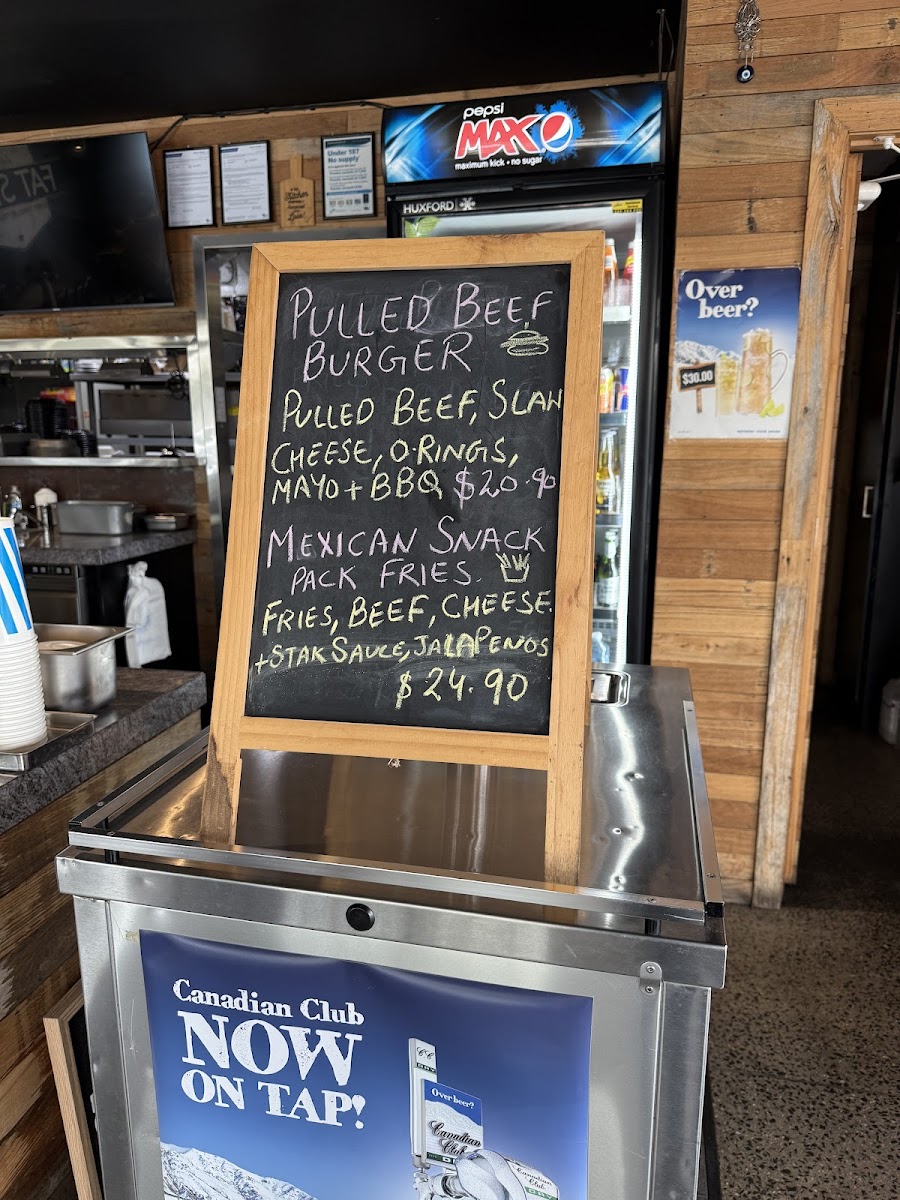 pepsi
MAX
maximum kick • no sugar
HUXFORD
Under 18?
No supply
FAT S
Over
beer?
$30.00
PULLED BEEF
BURGER
PULLED BEEF, SLAW
CHEESE, O-RINGS,
MAYO + BBQ $20.90
MEXICAN SNACK
PACK FRIES.
FRIES, BEEF, CHEESE
+ STAK SAUCE, JALAPENOS
$24.90
Canadian Club
NOW
ON TAP!
CC
DRY
Over beer?
Canadian
Club
Canadian
Club
DRY